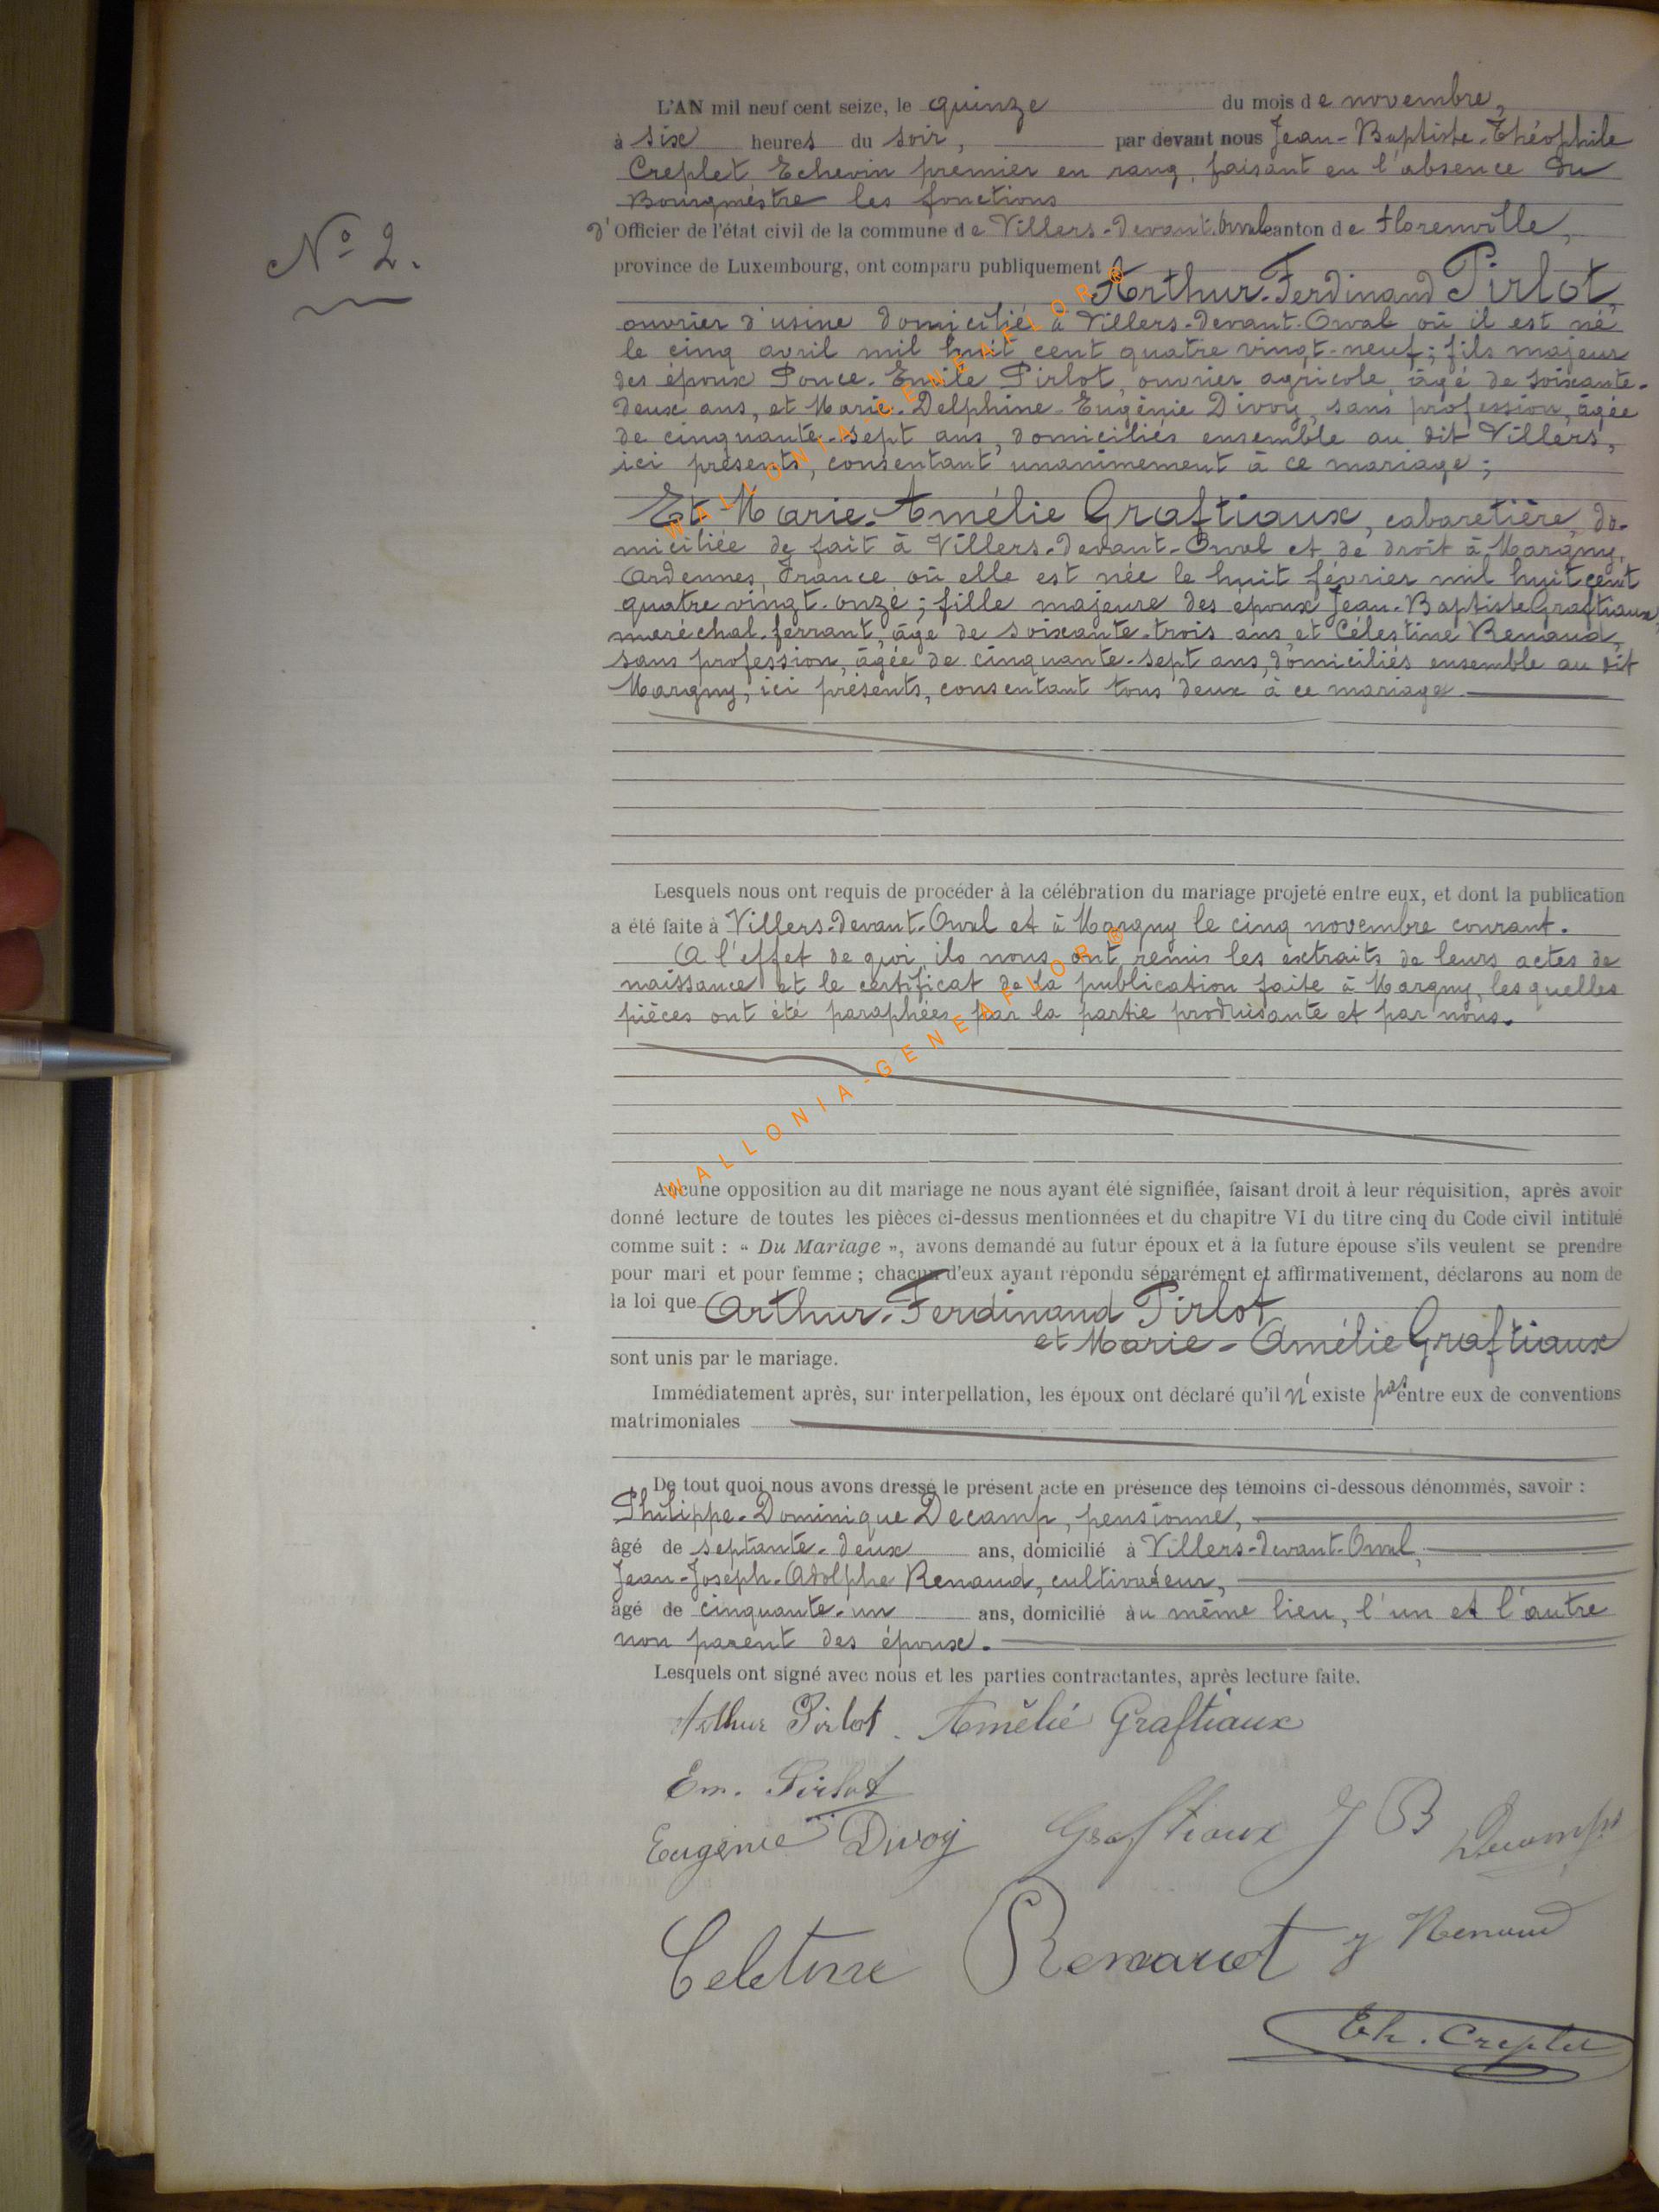 L'AN mil neuf cent seize, le quinze du mois de novembre,
à six heures du soir, par devant nous Jean-Baptiste-Théophile
Creplet Echevin premier en rang, faisant en l'absence du
Bourgmestre les fonctions
N° 2.
d'Officier de l'état civil de la commune de Villers-devant-Orval canton de Florenville,
province de Luxembourg, ont comparu publiquement Arthur-Ferdinand Pirlot,
ouvrier d'usine domicilié à Villers-devant-Orval où il est né
le cinq avril mil huit cent quatre vingt-neuf; fils majeur
des époux Ponce-Emile Pirlot, ouvrier agricole, âgé de soixante-
deux ans, et Marie-Delphine-Eugénie Divoy, sans profession, âgée
de cinquante-sept ans, domiciliés ensemble au dit Villers,
ici présents, consentant unanimement à ce mariage;
Et Marie-Amélie Graftiaux, cabaretière, do-
miciliée de fait à Villers-devant-Orval et de droit à Margny,
Ardennes, France où elle est née le huit février mil huit cent
quatre vingt-onze; fille majeure des époux Jean-Baptiste Graftiaux,
maréchal-ferrant, âgé de soixante-trois ans et Célestine Renaud,
sans profession, âgée de cinquante-sept ans, domiciliés ensemble au dit
Margny, ici présents, consentant tous deux à ce mariage.
Lesquels nous ont requis de procéder à la célébration du mariage projeté entre eux, et dont la publication
a été faite à Villers-devant-Orval et à Margny le cinq novembre courant.
A l'effet de quoi, ils nous ont remis les extraits de leurs actes de
naissance et le certificat de la publication faite à Margny, lesquelles
pièces ont été paraphées par la partie produisante et par nous.
Aucune opposition au dit mariage ne nous ayant été signifiée, faisant droit à leur réquisition, après avoir
donné lecture de toutes les pièces ci-dessus mentionnées et du chapitre VI du titre cinq du Code civil intitulé
comme suit : « Du Mariage », avons demandé au futur époux et à la future épouse s'ils veulent se prendre
pour mari et pour femme ; chacun d'eux ayant répondu séparément et affirmativement, déclarons au nom de
la loi que Arthur-Ferdinand Pirlot
et Marie-Amélie Graftiaux
sont unis par le mariage.
Immédiatement après, sur interpellation, les époux ont déclaré qu'il n'existe pas entre eux de conventions
matrimoniales
De tout quoi nous avons dressé le présent acte en présence des témoins ci-dessous dénommés, savoir :
Philippe-Dominique Decamp, pensionné,
âgé de septante-deux ans, domicilié à Villers-devant-Orval,
Jean-Joseph-Adolphe Renaud, cultivateur,
âgé de cinquante-un ans, domicilié au même lieu, l'un et l'autre
non parent des époux.
Lesquels ont signé avec nous et les parties contractantes, après lecture faite.
Arthur Pirlot. Amélie Graftiaux
Em. Pirlot
Eugénie Divoy Graftiaux J B Decamps
Celetine Renaud J Renaud
Th. Creplet
WALLONIA-GENEAFLOR®
WALLONIA-GENEAFLOR®